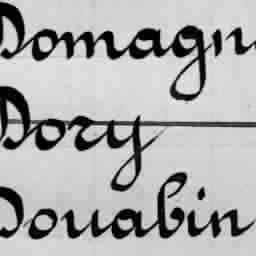 Domagn
Dory
Douabin